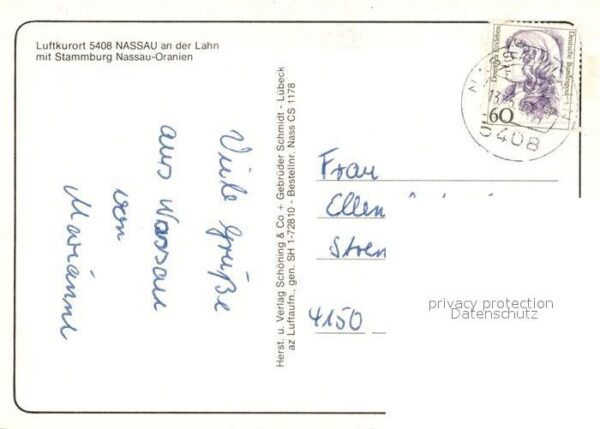 Luftkurort 5408 NASSAU an der Lahn
mit Stammburg Nassau-Oranien
Viele Grüße
aus Nassau
von
Marianne
Herst. u. Verlag Schöning & Co + Gebrüder Schmidt - Lübeck
az Luftaufn., gen. SH 1-72810 - Bestellnr. Nass CS 1178
Deutsche Bundespost
60
5408
Frau
Ellen
4150
privacy protection
Datenschutz